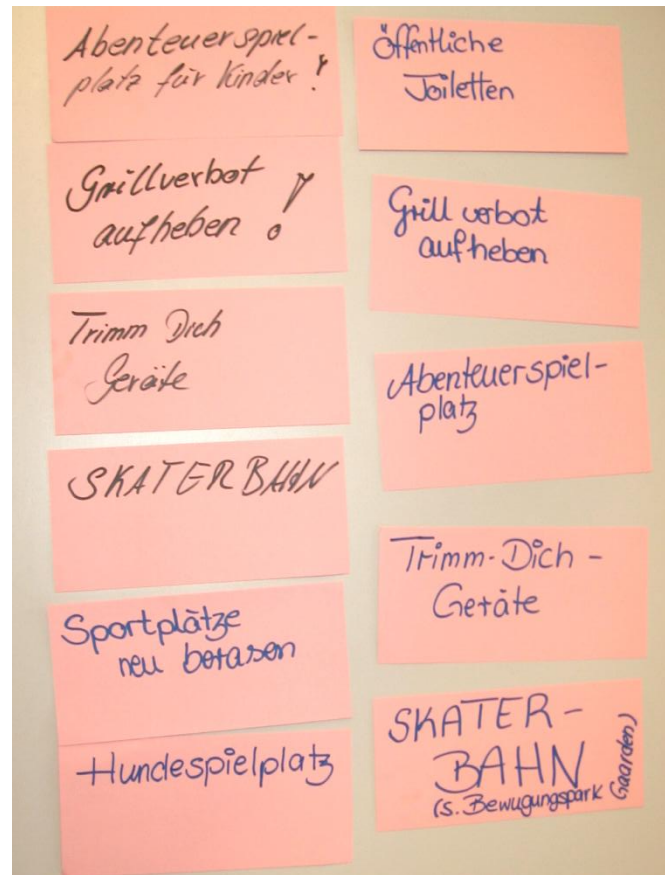 Abenteuerspiel-
platz für Kinder!
Grillverbot
aufheben!
Trimm Dich
Geräte
SKATERBAHN
Sportplätze
neu berasen
Hundespielplatz
Öffentliche
Toiletten
Grillverbot
aufheben
Abenteuerspiel-
platz
Trimm-Dich-
Geräte
SKATER-
BAHN
(s. Bewugungspark Gaarden)